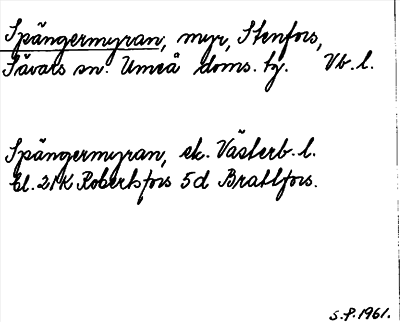 Spängermyran, myr, Stenfors,
Sävars sn. Umeå doms. tg. Vb. l.
Spängermyran, ek. Västerb. l.
bl. 21K Robertsfors 5d Brattfors.
S.P. 1961.